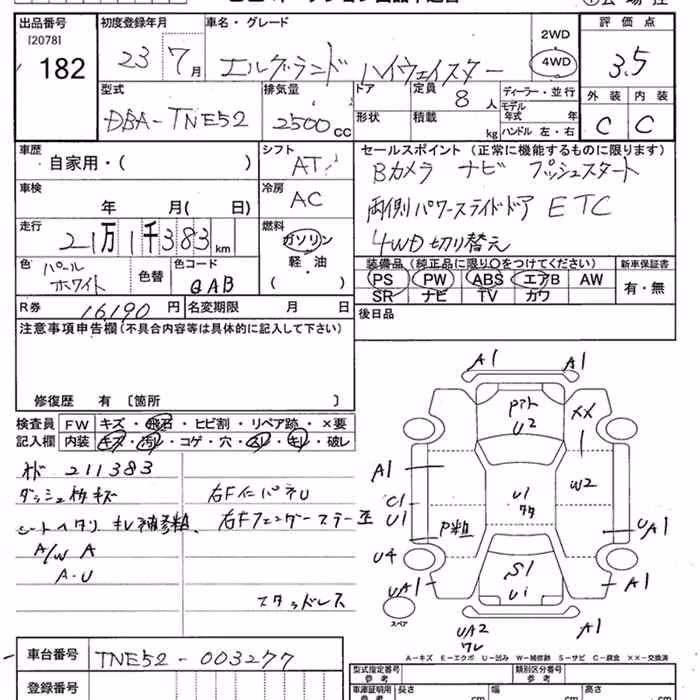 出品番号 初度登録年月 車名・グレード 評価点
[2078]
182 23 7月 エルグランド ハイウェイスター 2WD 4WD 3.5
型式 排気量 ドア 定員 8人 ディーラー・並行 外装 内装
DBA-TNE52 2500cc 形状 積載 kg モデル年式 年 ハンドル 左・右 C C
車歴 シフト セールスポイント（正常に機能するものに限ります）
自家用・( ) AT Bカメラ ナビ プッシュスタート
車検 冷房
年 月( 日) AC 両側パワースライドドア ETC
走行 燃料
21万1千383km ガソリン 4WD切り替え
色 パールホワイト 色替 色コード QAB 軽・油 ( ) 装備品（純正品に限り○をつけてください） 新車保証書
PS PW ABS エアB AW 有・無
SR ナビ TV カワ
R券 16,190円 名変期限 月 日 後日品
注意事項申告欄（不具合内容等は具体的に記入して下さい）
修復歴 有 〔箇所 〕
検査員 FW キズ・飛石・ヒビ割・リペア跡・×要
記入欄 内装 キズ・汚れ・コゲ・穴・スレ・キレ・破し
211383
ダッシュ板キズ 右F
シートヘタリ キレ補修粗 右Fフェンダーステー歪
A/W A
A・U
スタッドレス
A1 A1
U2 XX
A1 W2
C1 U1
U1 P粗 UA1
U4 S1 A1
UA1 U1
スペア UA2 A1
ワレ
A－キズ E－エクボ U－凹み W－補修跡 S－サビ C－腐食 XX－交換済
車台番号 TNE52-003277 型式指定番号 参考 類別区分番号 参考
登録番号 車庫証明用 参考 長さ cm 幅 cm 高さ cm